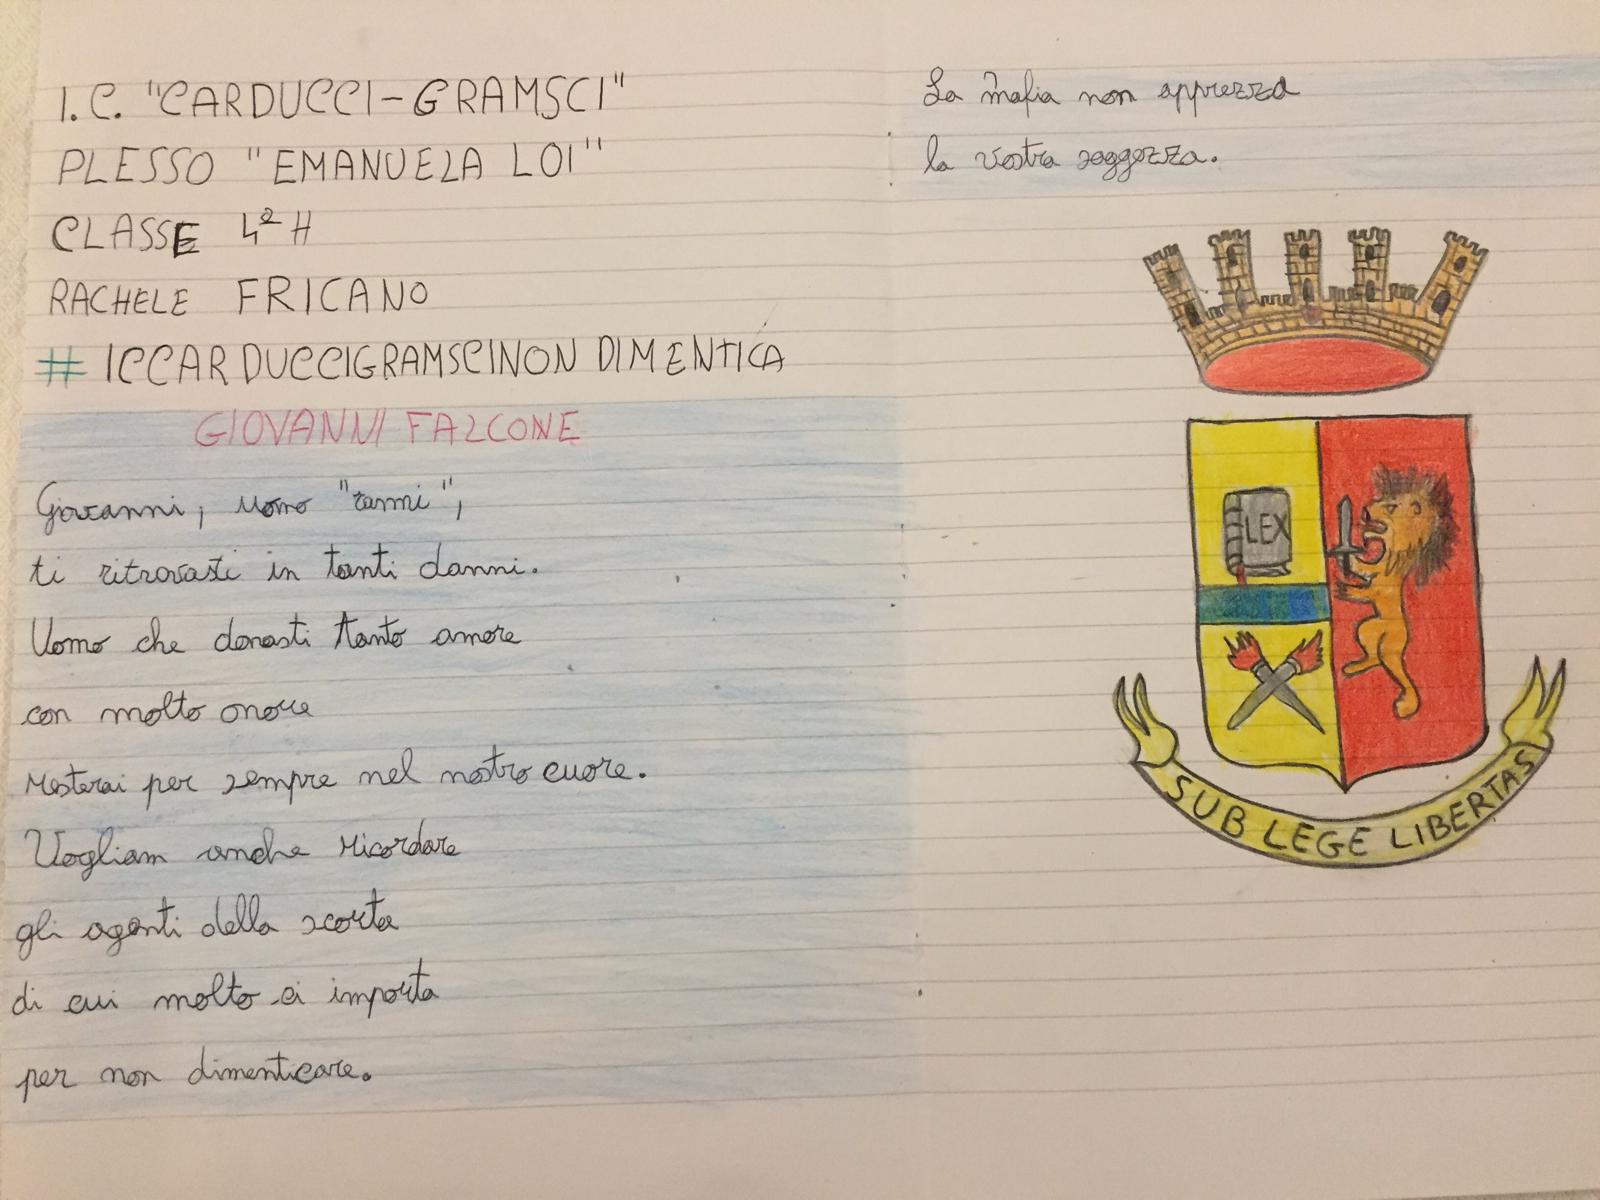 I.C. "CARDUCCI-GRAMSCI"
PLESSO "EMANUELA LOI"
CLASSE 4ª H
RACHELE FRICANO
# ICCARDUCCIGRAMSCINON DIMENTICA
GIOVANNI FALCONE
Giovanni, uomo "ranni",
ti ritrovasti in tanti danni.
Uomo che donasti tanto amore
con molto onore
resterai per sempre nel nostro cuore.
Vogliam anche ricordare
gli agenti della scorta
di cui molto ci importa
per non dimenticare.
La mafia non apprezza
la vostra saggezza.
LEX
SUB LEGE LIBERTAS